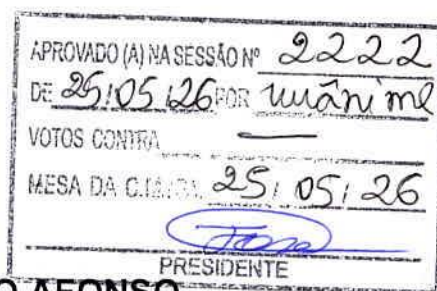 APROVADO (A) NA SESSÃO Nº 2222
DE 25/05/26 POR unânime
VOTOS CONTRA —
MESA DA C.M. 25/05/26
PRESIDENTE
O AFONSO